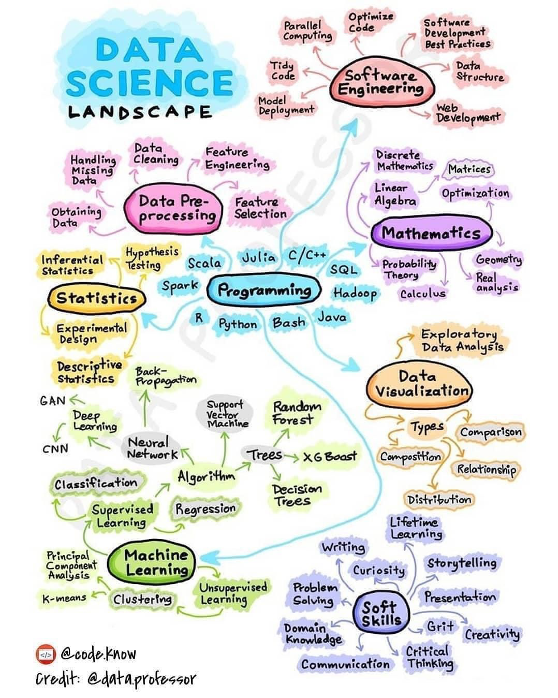 DATA
SCIENCE
LANDSCAPE
Parallel
Computing
Optimize
Code
Software
Development
Best Practices
Tidy
Code
Software
Engineering
Data
Structure
Model
Deployment
Web
Development
Handling
Missing
Data
Data
Cleaning
Feature
Engineering
Obtaining
Data
Data Pre-
processing
Feature
Selection
Discrete
Mathematics
Matrices
Linear
Algebra
Optimization
Mathematics
Probability
Theory
Calculus
Geometry
Real
analysis
Inferential
Statistics
Hypothesis
Testing
Statistics
Experimental
Design
Descriptive
Statistics
Scala
Julia
C/C++
SQL
Spark
Programming
Hadoop
R
Python
Bash
Java
Exploratory
Data Analysis
Data
Visualization
Types
Comparison
Composition
Relationship
Distribution
Back-
Propagation
GAN
Deep
Learning
CNN
Neural
Network
Support
Vector
Machine
Random
Forest
Trees
XG Boost
Decision
Trees
Algorithm
Classification
Supervised
Learning
Regression
Machine
Learning
Principal
Component
Analysis
K-means
Clustering
Unsupervised
Learning
Lifetime
Learning
Writing
Curiosity
Storytelling
Problem
Solving
Soft
Skills
Presentation
Domain
Knowledge
Grit
Creativity
Communication
Critical
Thinking
</> @code.know
Credit: @data.professor